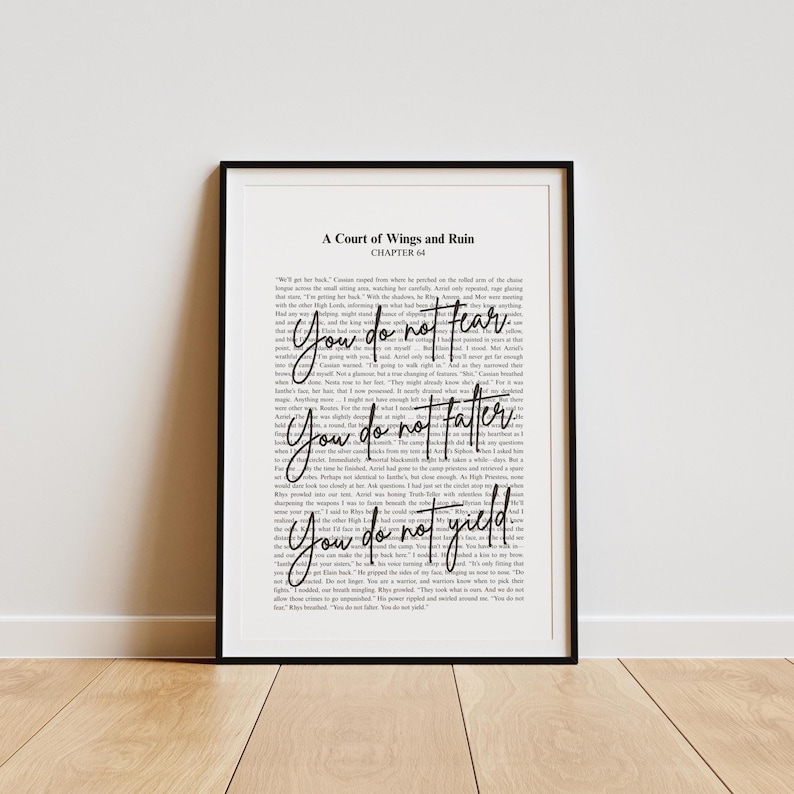 A Court of Wings and Ruin
CHAPTER 64
You do not fear.
You do not falter.
You do not yield.
“We’ll get her back,” Cassian rasped from where he perched on the rolled arm of the chaise
longue across the small sitting area, watching her carefully. Azriel only repeated, rage glazing
that stare, “I’m getting her back.” With the shadows, he Rhys, Amren, and Mor were meeting
with the other High Lords, informing them what had been done.
Had any way of helping. might stand chance of slipping in
and and the king with those spells and the
that Elain had once
and blue I’d in our cottage. I had painted in years at that
point, spend the money on myself … But Elain had. I stood. Met Azriel’s
wrathful stare. “I’m going with you,” I said. Azriel only nodded. “You’ll never get far enough
into the camp,” Cassian warned. “I’m going to walk right in.” And as they narrowed their
brows, I shifted myself. Not a glamour, but a true changing of features. “Shit,” Cassian breathed
when I done. Nesta rose to her feet. “They might already know she’s dead.” For it was
Ianthe’s face, her hair, that I now possessed. It nearly drained what was left of my depleted
magic. Anything more … I might not have enough left to keep
were other ways. Routes. For the rest of what I needed. of your said to
Azriel. The blue was slightly deeper but at night …
held it in his palm, a round, flat blue and
fingers the warm stone, in my veins like an unearthly heartbeat as I
looked blacksmith.” The camp blacksmith did not ask any questions
when I handed over the silver candlesticks from my tent and Azriel’s Siphon. When I asked him
to craft that circlet. Immediately. A mortal blacksmith might have taken a while—days. But a
Fae By the time he finished, Azriel had gone to the camp priestess and retrieved a spare
set of robes. Perhaps not identical to Ianthe’s, but close enough. As High Priestess, none
would dare look too closely at her. Ask questions. I had just set the circlet atop my hood when
Rhys prowled into our tent. Azriel was honing Truth-Teller with relentless focus, Cassian
sharpening the weapons I was to fasten beneath the robe—atop the Illyrian leathers. “He’ll
sense your power,” I said to Rhys before he could speak. know,” Rhys said And I
realized—realized the other High Lords had come up empty. My
the odds. Knew what I’d face in the
distance between us, clutching my face, and not Ianthe’s face, as if he could see
the soul wards around the camp. You can’t winnow. You have to walk in—
and out. you can make the jump back here.” I nodded. He brushed a kiss to my brow.
“Ianthe sold out your sisters,” he said, his voice turning sharp and hard. “It’s only fitting that
you use her to get Elain back.” He gripped the sides of my face, bringing us nose to nose. “Do
not get distracted. Do not linger. You are a warrior, and warriors know when to pick their
fights.” I nodded, our breath mingling. Rhys growled. “They took what is ours. And we do not
allow those crimes to go unpunished.” His power rippled and swirled around me. “You do not
fear,” Rhys breathed. “You do not falter. You do not yield.”